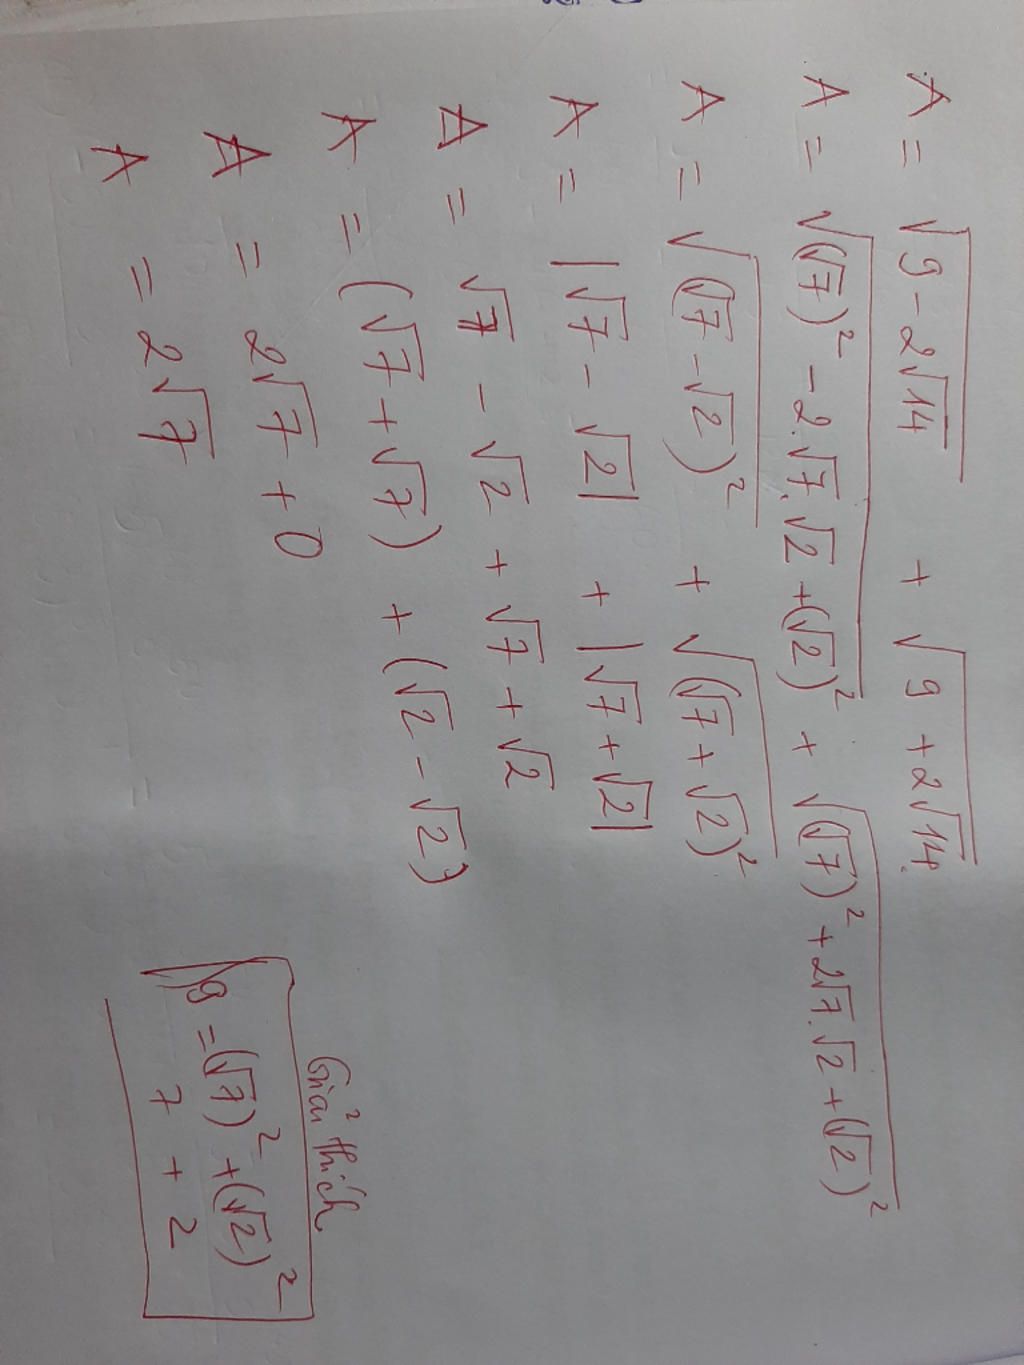 A = √(9 - 2√14) + √(9 + 2√14)
A = √((√7)² - 2.√7.√2 + (√2)²) + √((√7)² + 2√7.√2 + (√2)²)
A = √((√7 - √2)²) + √((√7 + √2)²)
A = |√7 - √2| + |√7 + √2|
A = √7 - √2 + √7 + √2
A = (√7 + √7) + (√2 - √2)
A = 2√7 + 0
A = 2√7
Giải thích
9 = (√7)² + (√2)²
7 + 2